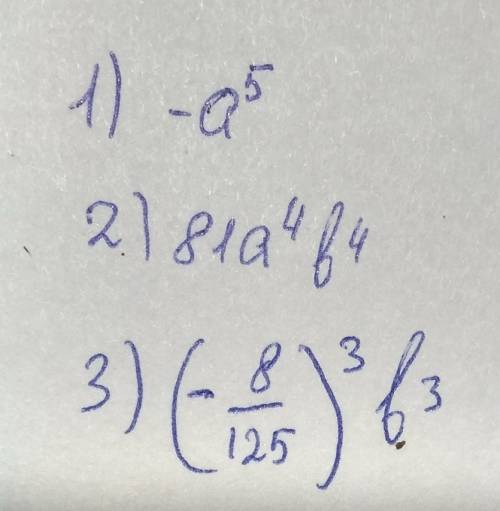 1) -a⁵
2) 81a⁴b⁴
3) (-8/125)³ b³